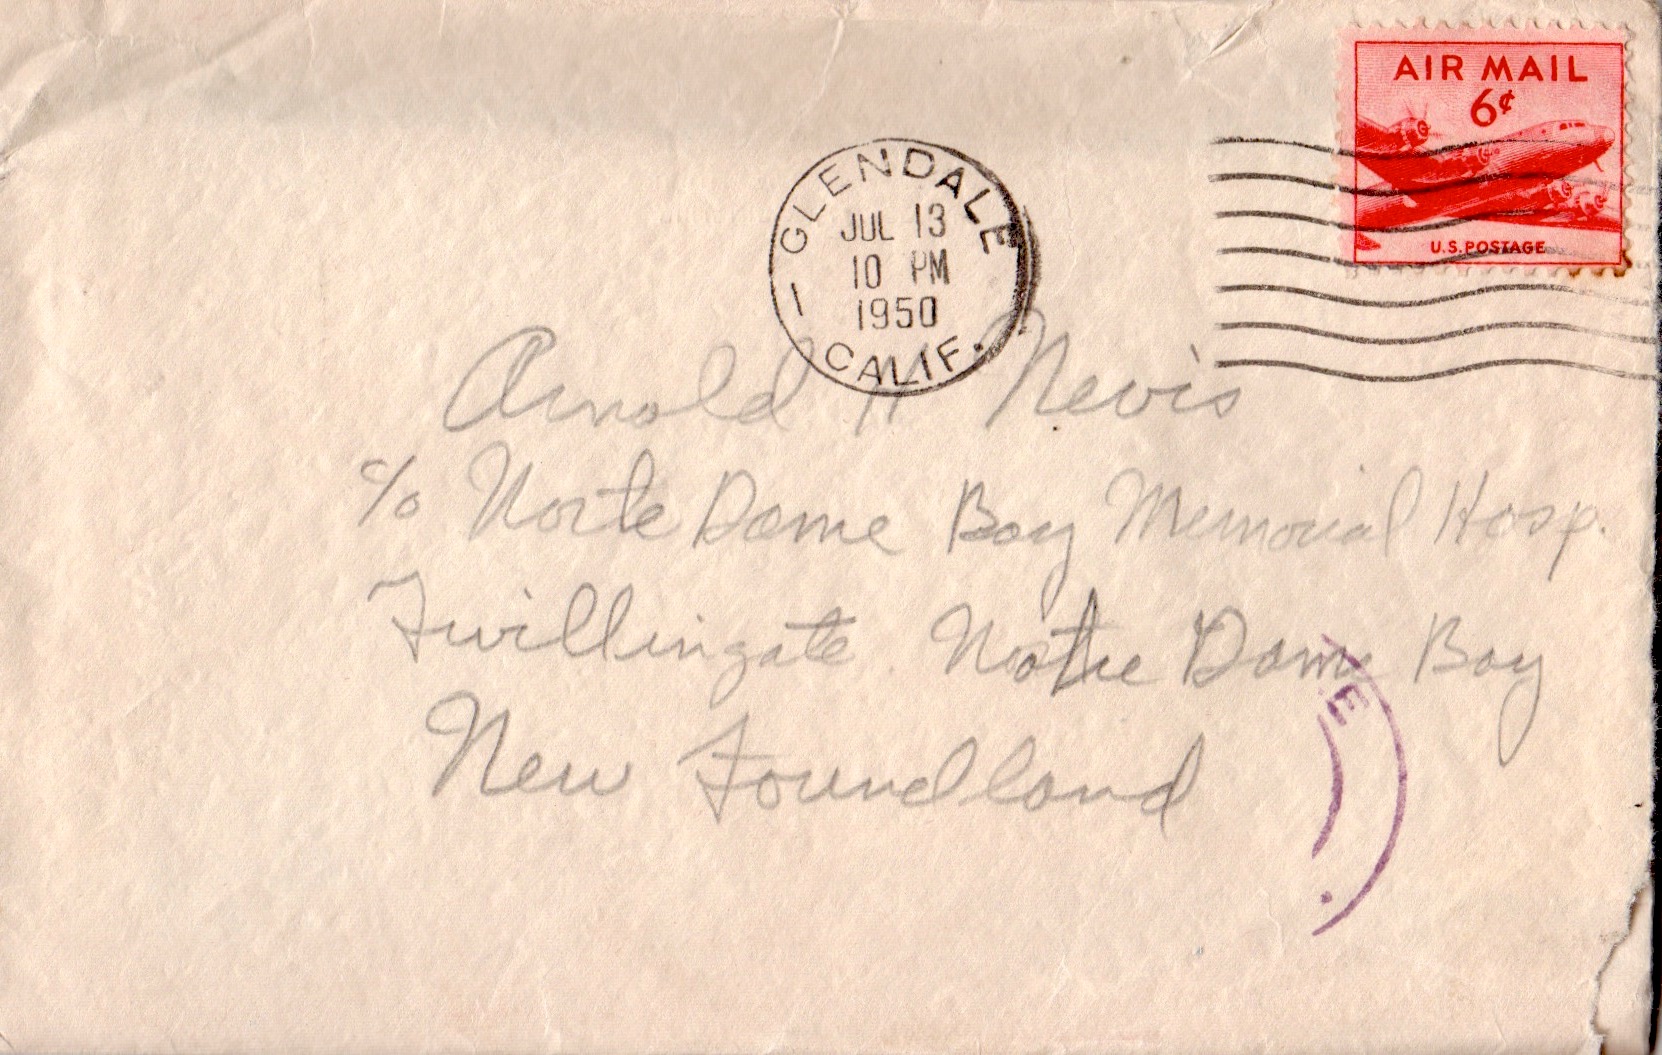 AIR MAIL
6¢
U.S. POSTAGE
GLENDALE
JUL 13
10 PM
1950
1
CALIF.
Arnold H Nevis
c/o Norte Dame Bay Memorial Hosp.
Twillingate Notre Dame Bay
New Foundland